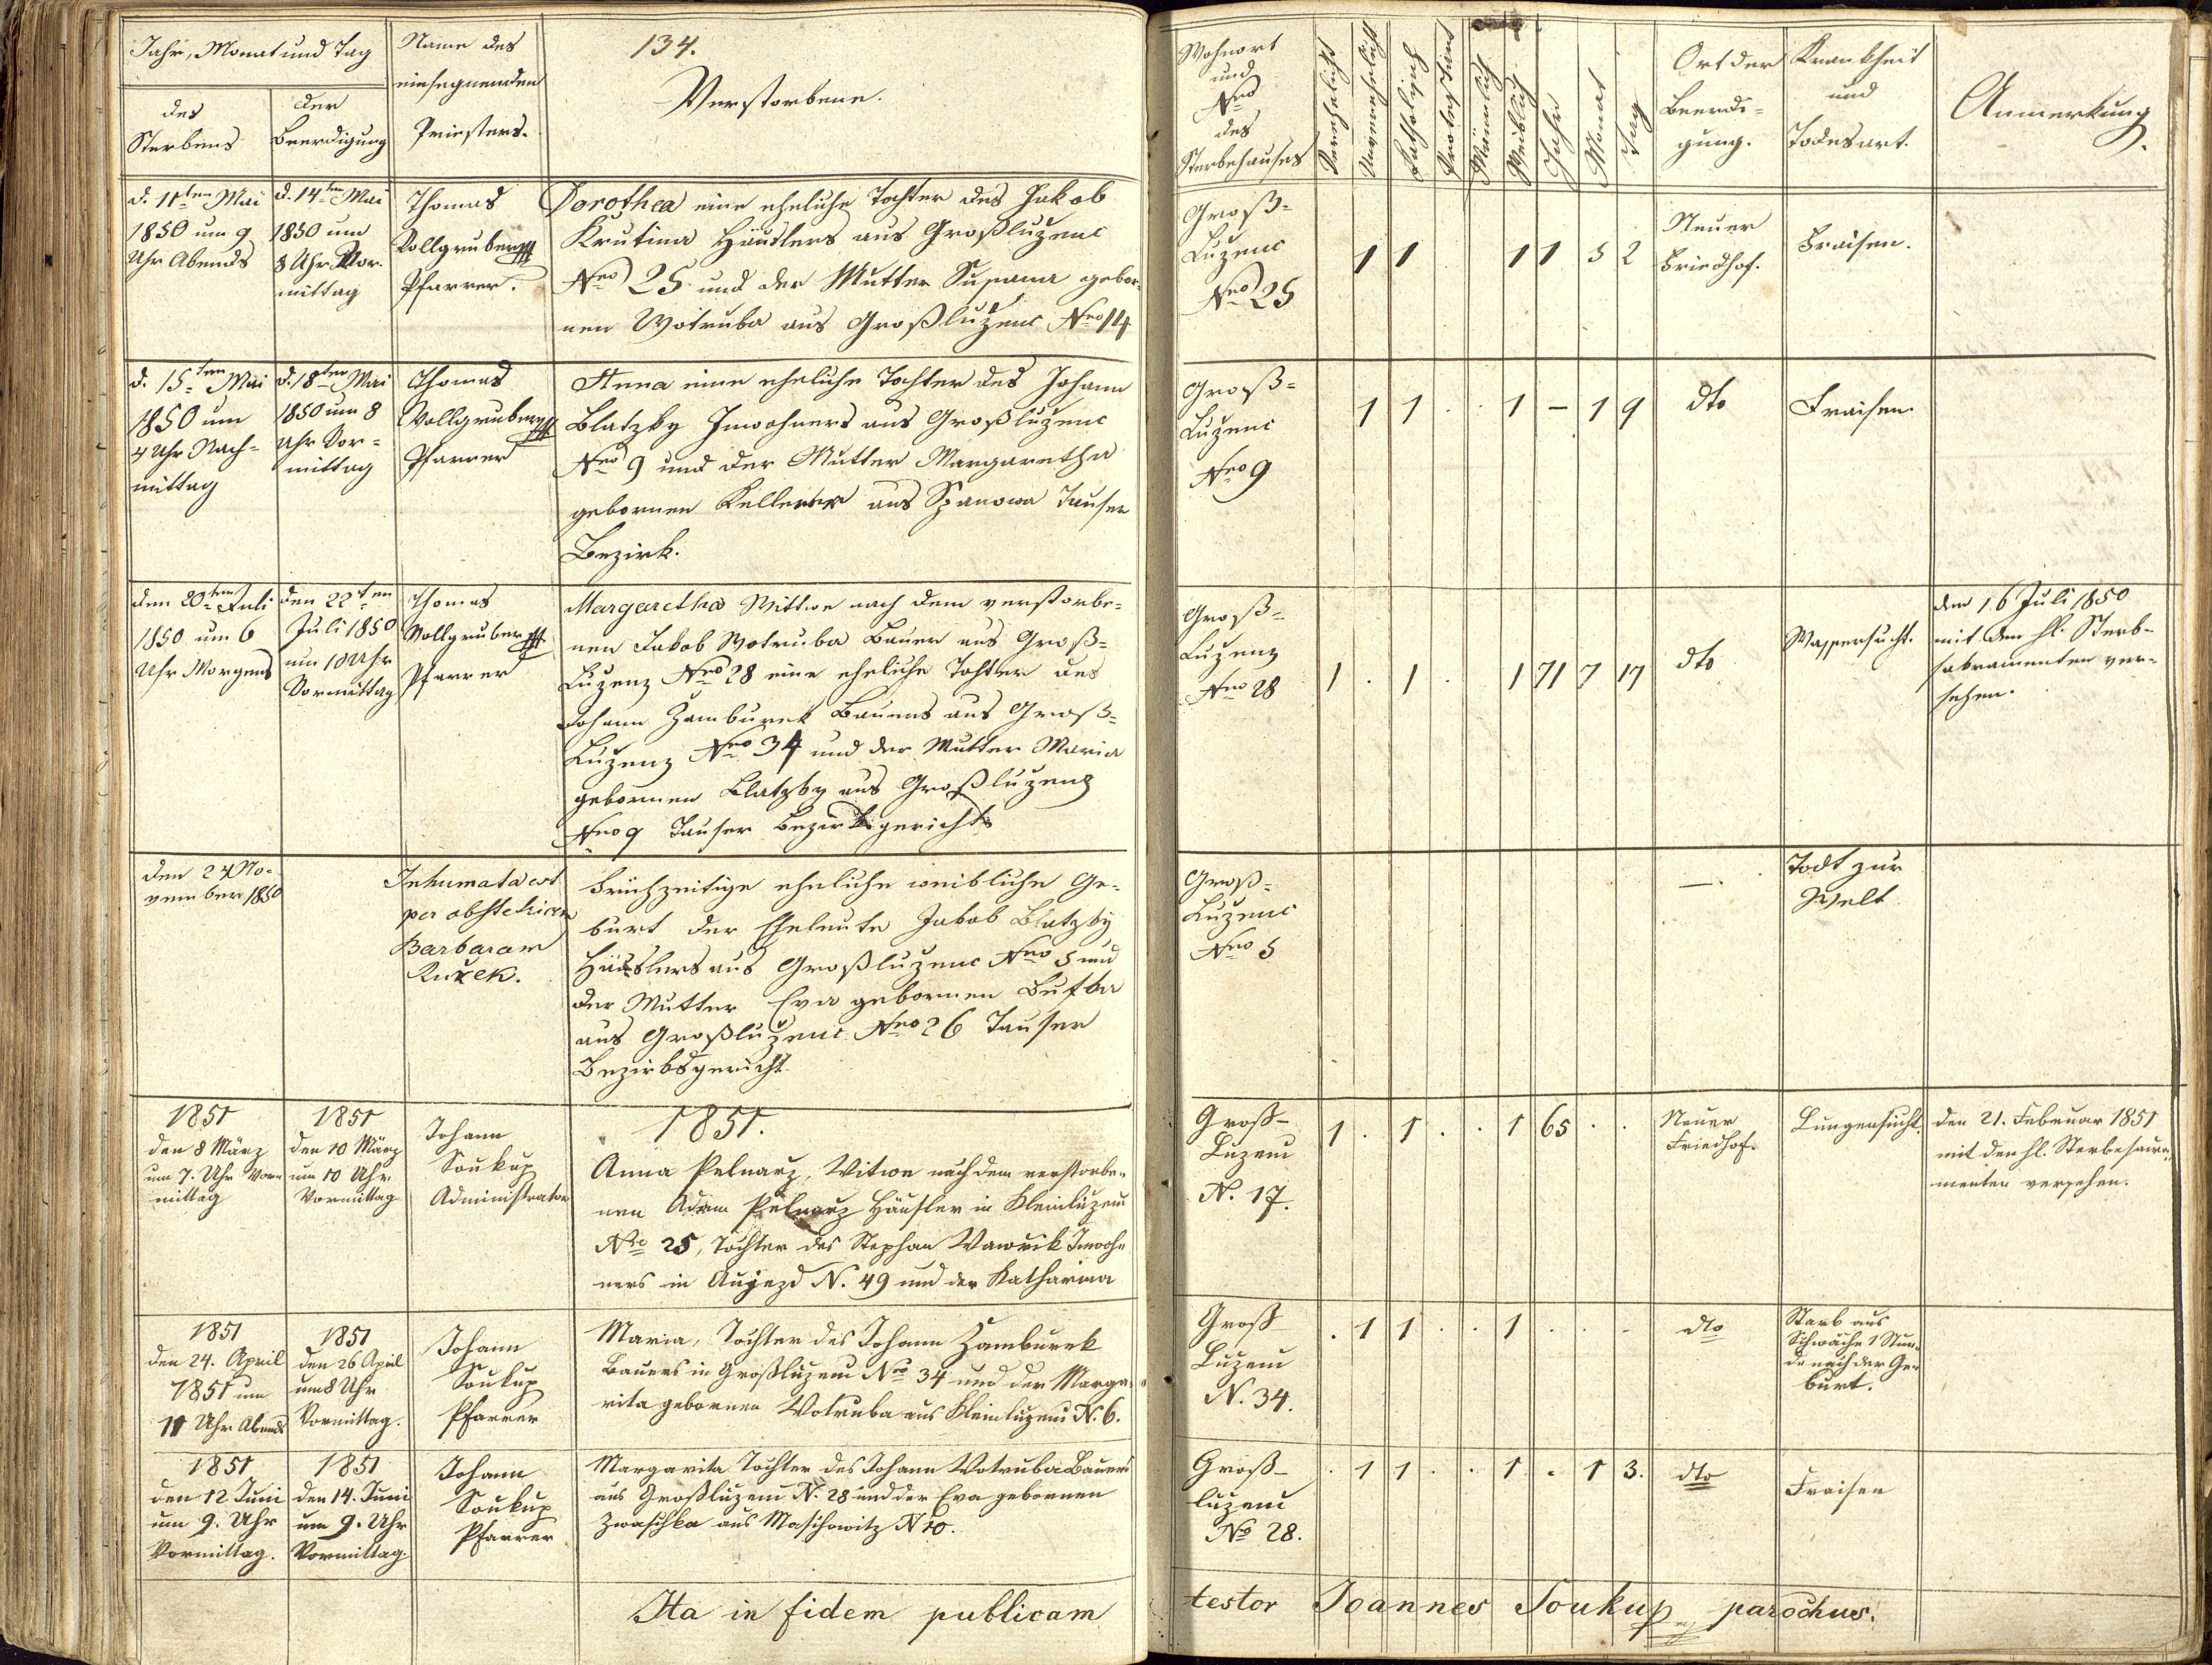 Jahr, Monat und Tag
des
Sterbens
der
Beerdigung
Name des
einsegnenden
Priesters.
134.
Verstorbene.
Wohnort
und
Nro
des
Sterbehauses
Verehelicht
Unverehelicht
Katholisch
Protestant
Männlich
Weiblich
Jahr
Monat
Tag
Ort der
Beerdi-
gung.
Krankheit
und
Todesart.
Anmerkung
d. 11ten Mai
1850 um 9
Uhr Abends
d. 14ten Mai
1850 um
8 Uhr Vor-
mittag
Thomas
Vollgruber
Pfarrer.
Dorothea eine eheliche Tochter des Jakob
Krutina Häuslers aus Großluzenc
Nro 25 und der Mutter Susanna gebor-
nen Wotruba aus Großlużenc Nro 14
Groß-
Luzenc
Nro 25
1 1 1 1 5 2
Neuer
Friedhof.
Fraisen.
d. 15ten Mai
1850 um
4 Uhr Nach-
mittag
d. 18ten Mai
1850 um 8
Uhr Vor-
mittag
Thomas
Vollgruber
Pfarrer
Anna eine eheliche Tochter des Johann
Blatzky Inwohners aus Großluzenc
Nro 9 und der Mutter Margaretha
gebornen Kellner aus Spanowa Tauser
Bezirk.
Groß-
Luzenc
Nro 9
1 1 . . 1 – 1 9
dto
Fraisen.
den 20ten Juli
1850 um 6
Uhr Morgens
den 22ten
Juli 1850
um 10 Uhr
Vormittag
Thomas
Vollgruber
Pfarrer
Margaretha Wittwe nach dem verstorbe-
nen Jakob Wotruba Bauer aus Groß-
Luzenz Nro 28 eine eheliche Tochter des
Johann Zamburek Bauers aus Groß-
Luzenz Nro 34 und der Mutter Maria
gebornen Blatzky aus Großluzenz
Nro 9 Tauser Bezirksgericht
Groß-
Luzenz
Nro 28
1 . 1 . 1 71 7 17
dto
Wassersucht.
den 16 Juli 1850
mit den hl. Sterb-
sakramenten ver-
sehen.
den 24 No-
vember 1850
Inhumata est
per obstetricem
Barbaram
Kuželk.
Frühzeitige eheliche weibliche Ge-
burt der Eheleute Jakob Blatzky
Häuslers aus Großluzenc Nro 5 und
der Mutter Eva gebornen Bufka
aus Großluženc Nro 26 Tauser
Bezirksgericht
Groß-
Luzenc
Nro 5
—.
Todt zur
Welt
1851
den 8 März
um 7. Uhr Vor-
mittag
1851
den 10 März
um 10 Uhr
Vormittag
Johann
Soukup
Administrator
1851.
Anna Pelnarz, Witwe nach dem verstorbe-
nen Adam Pelnarz Häusler in Kleinluzenu
Nro 25, Tochter des Stephan Wawrik Inwoh-
ners in Aujezd N. 49 und der Katharina
Groß-
Luzenu
N. 17.
1 . 1 . . 1 65 . .
Neuer
Friedhof.
Lungensucht.
den 21. Februar 1851
mit den hl. Sterbesacra-
menten versehen.
1851
den 24. April
1851 um
11 Uhr Abends
1851
den 26 April
um 8 Uhr
Vormittag.
Johann
Soukup
Pfarrer
Maria, Tochter des Johann Zamburek
Bauers in Großluzenu Nro 34 und der Marga-
rita gebornen Votruba aus Kleinluzenu N. 6.
Groß
Luzenu
N. 34.
. 1 1 . . 1 . . .
dto
Starb aus
Schwäche 1 Stun-
de nach der Ge-
burt.
1851
den 12 Juni
um 9. Uhr
Vormittag.
1851
den 14. Juni
um 9. Uhr
Vormittag.
Johann
Soukup
Pfarrer
Margarita Tochter des Johann Votruba Bauers
aus Großluzenu N. 28 und der Eva gebornen
Zwaschka aus Maschowitz N 10.
Groß-
luzenu
No 28.
. 1 1 . . 1 . 1 3.
dto
Fraisen
Ita in fidem publicam
testor Joannes Soukup parochus.